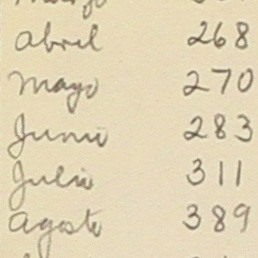 abril 268
mayo 270
Junio 283
Julio 311
agosto 389